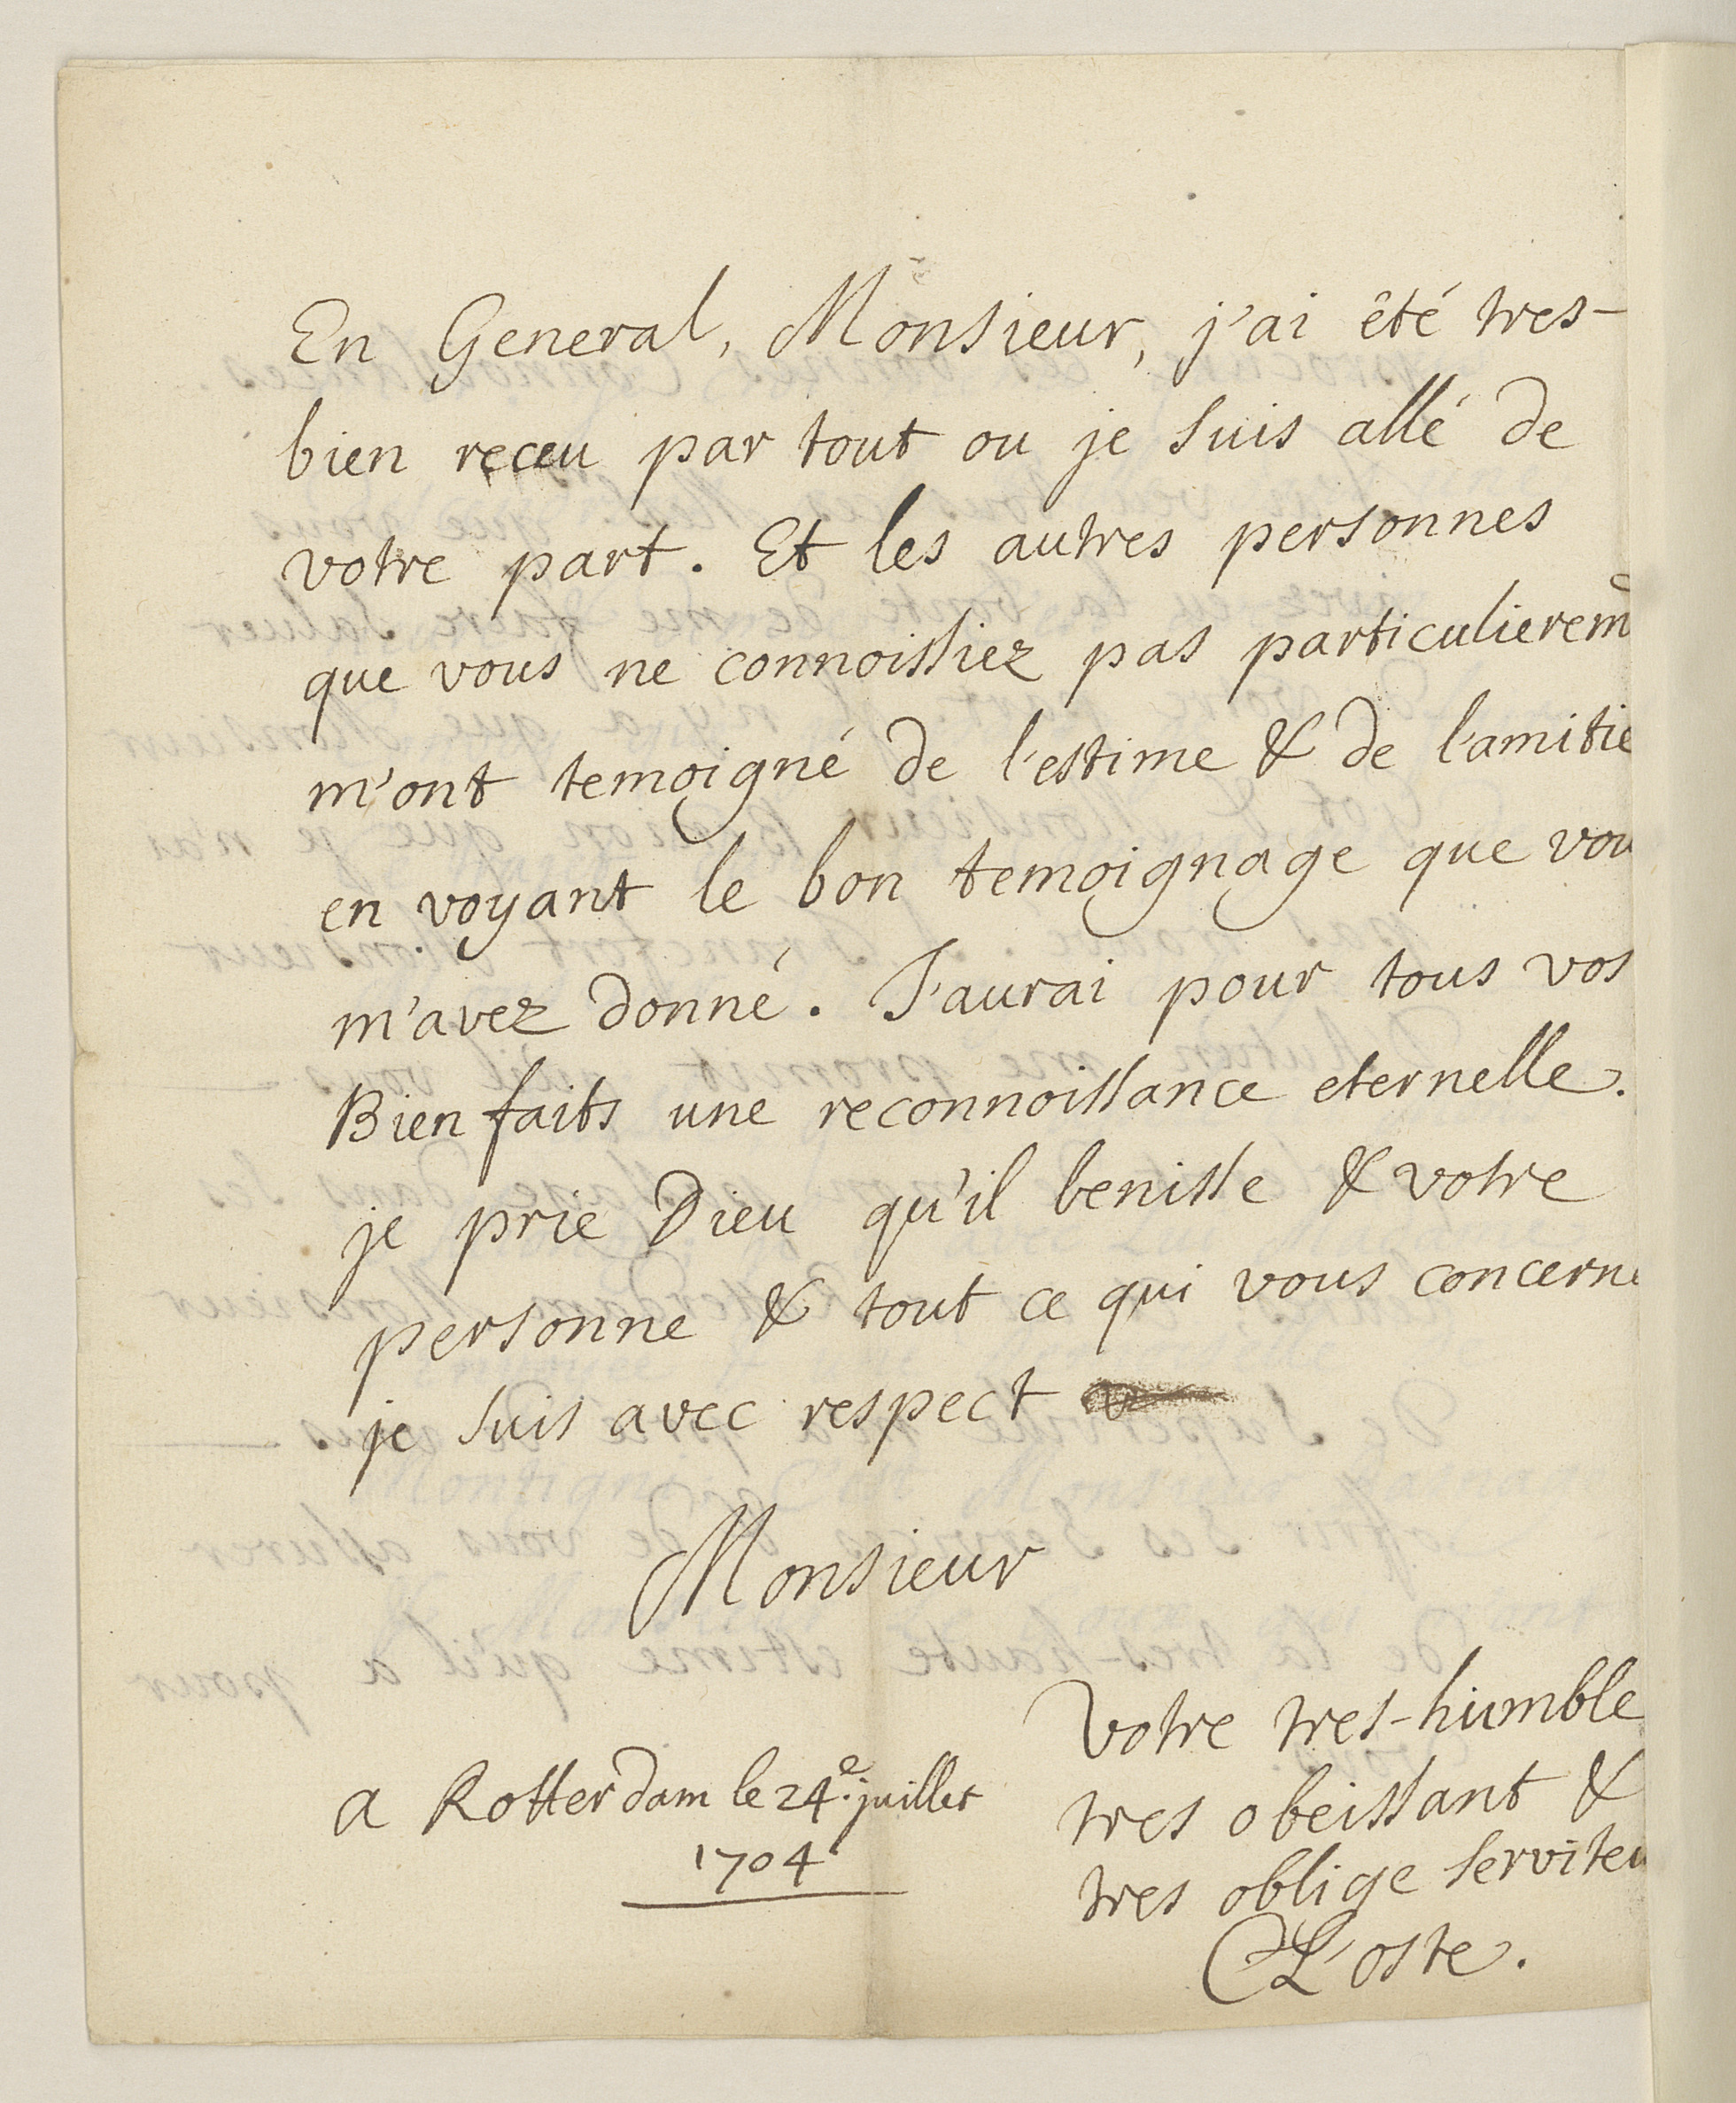 En General, Monsieur, j'ai êté tres-
bien receu par tout ou je suis allé de
votre part. Et les autres personnes
que vous ne connoissiez pas particulierem̃
m'ont temoigné de l'estime & de l'amitie
en voyant le bon temoignage que vou
m'avez donné. J'aurai pour tous vos
Bien faits une reconnoissance eternelle.
je prie Dieu qu'il benisse & votre
personne & tout ce qui vous concerne
je suis avec respect
Monsieur
Votre tres-humble
tres obeissant &
tres oblige serviteu
L'oste.
a Rotterdam le 24e. juillet
1704